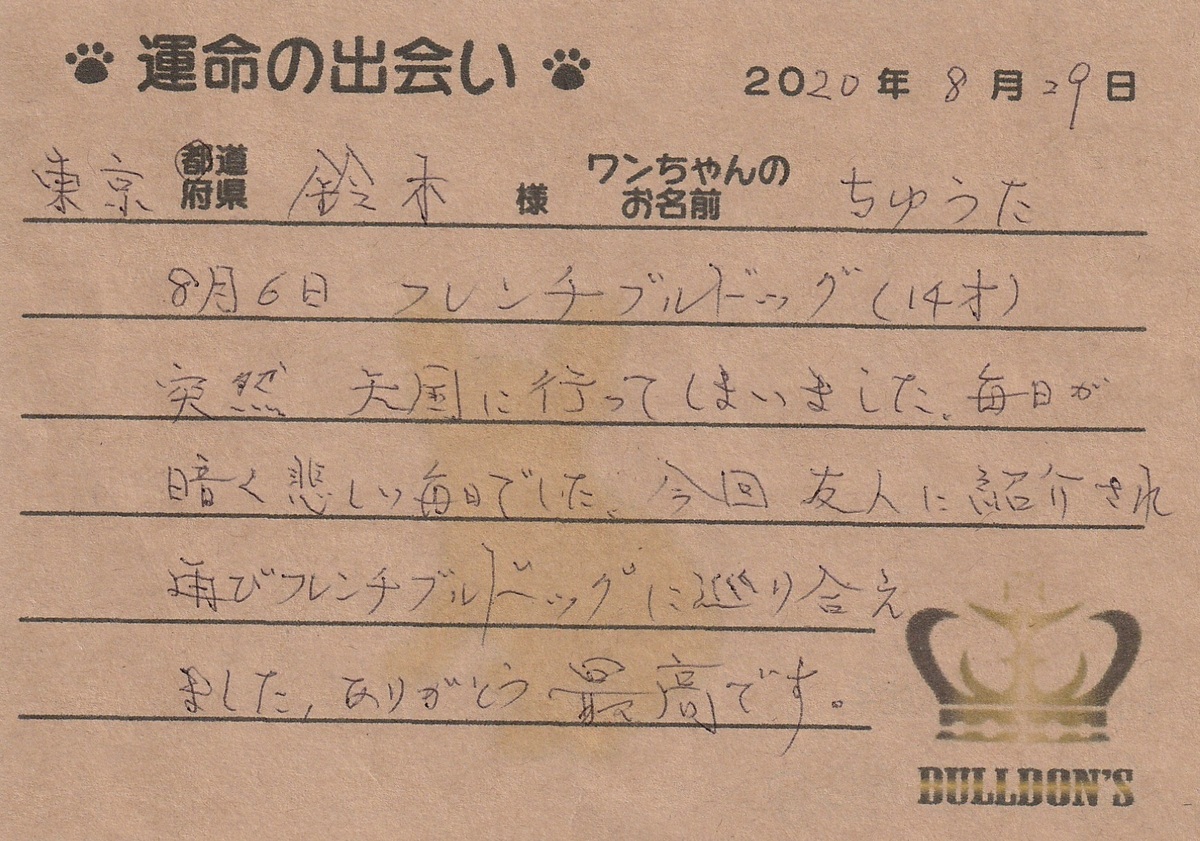 運命の出会い
2020年 8月29日
東京 都道府県 鈴木 様 ワンちゃんのお名前 ちゅうた
8月6日 フレンチブルドッグ(14才)
突然 天国に行ってしまいました、毎日が
暗く悲しい毎日でした、今回 友人に紹介され
再びフレンチブルドッグに巡り合え
ました、ありがとう最高です。
BULLDON'S